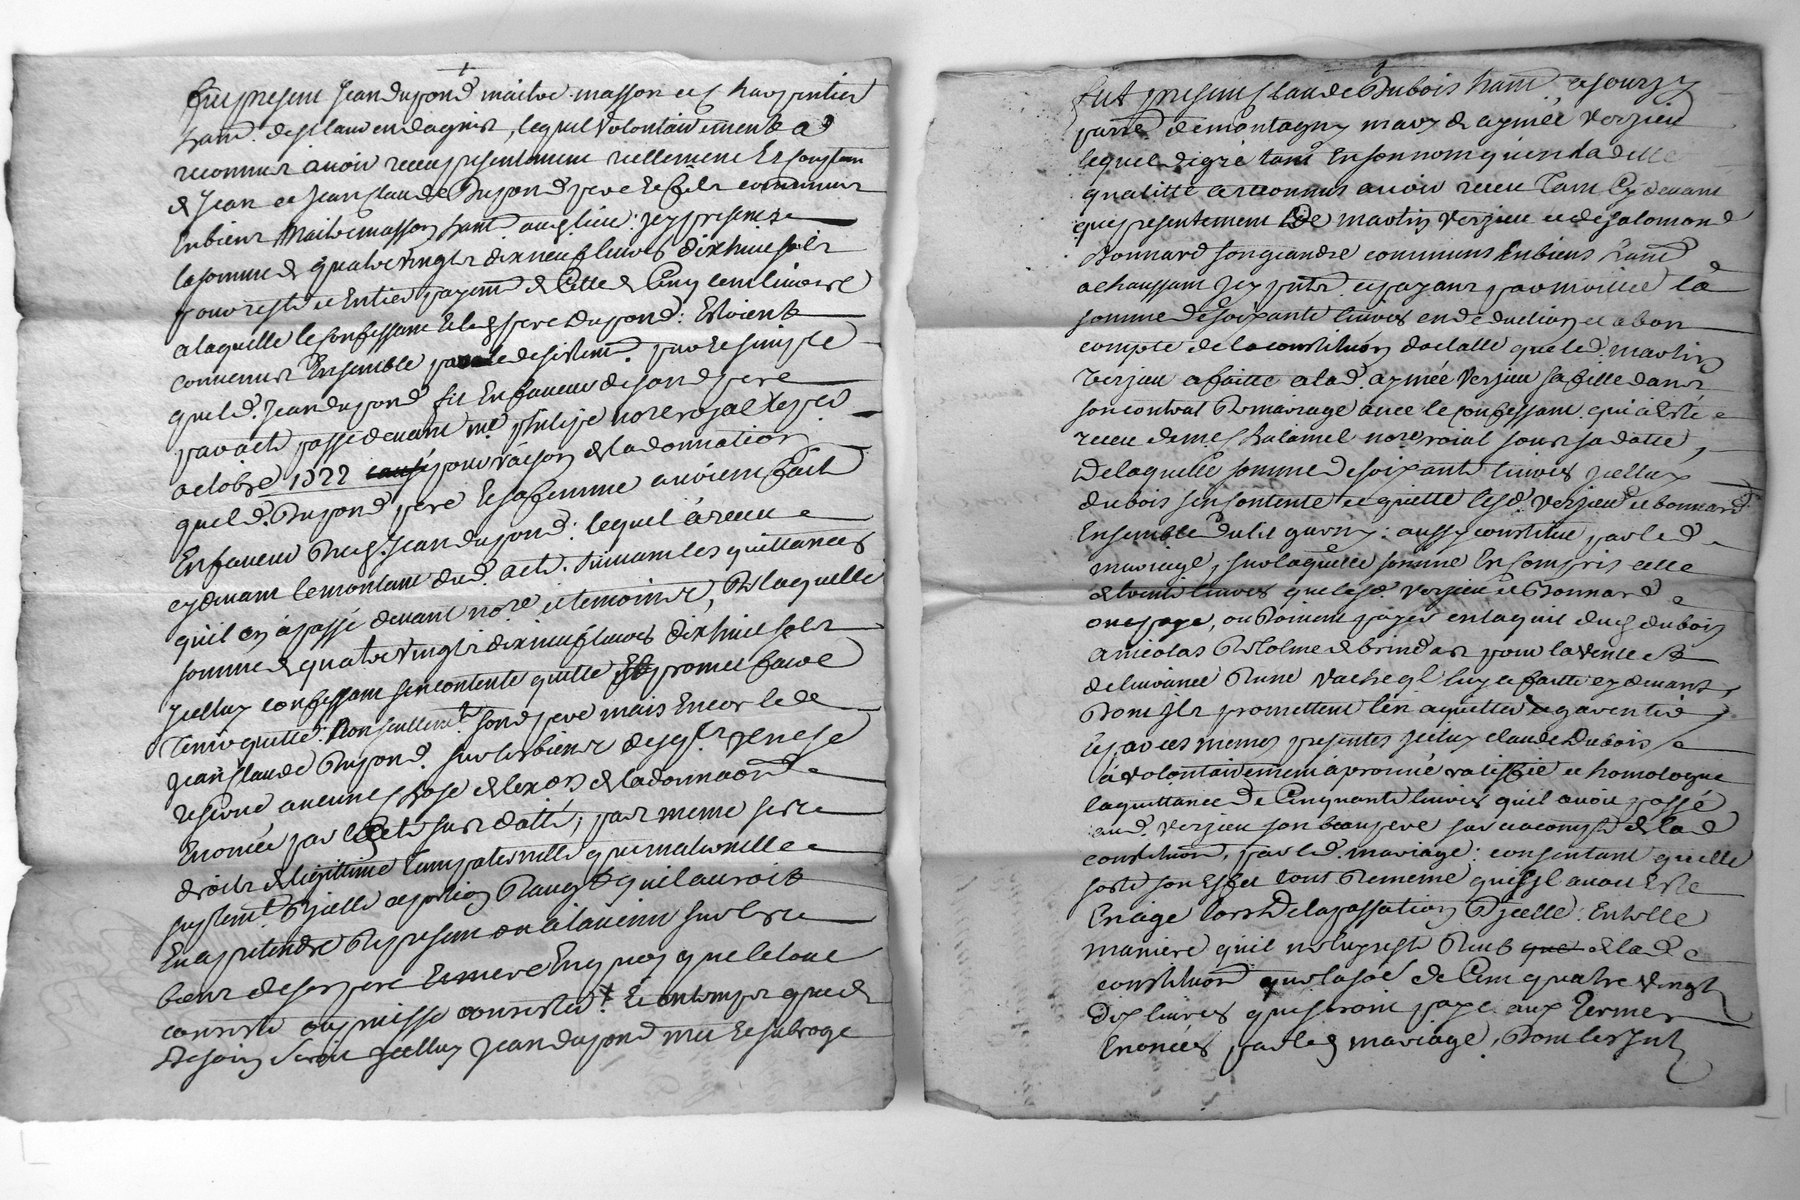 fut present Jean dupond maitre masson et charpentier
hant. de st laurend dagnir, lequel volontairement a
reconnut avoir receu presentement reellement Et
de Jean et Jean claude Dupond pere et fils communs
En bien Maitre masson hant audt lieu: Jcy present
la somme de quatre vingt dix neuf livres dix huit sols
pour reste et Entier payemt de Celle de Cinq cent livres
a laquelle le Confessant et led pere Dupond: Estoient
convenus Ensemble par le desistemt. pur Et simple
que led. Jean dupond fit En faveur de sond pere
par acte passé devant me philipe nore royal le per
octobre 1722 pour raison de la donnation
que led. Dupond pere Et sa femme avoient fait
En faveur Dud. Jean dupond: lequel a receu
cy devant le montant dud. acte. suivant les quittances
quil en a passé devant nore et temoins, De laquelle
somme de quatre vingt dix neuf livres dix huit sols
Jcelluy confessant sen contente quitte Et promet faire
tenir quitte. Non seullemt sond pere mais Encor led
Jean Claude Dupond. sur les biens desqls Jl ne se
reserve aucune chose de lexon de la donnaon
Enoncée par led acte sus datté, pas meme ses
droits de legitime tant paternelle que maternelle
suplemt D'jcelle et portion D'augt quil auroit
En a pretendre De present ou a lavenir sur les
biens de ses pere Et mere En quoy que le tout
consiste ou puisse consister. Et en temps que de
Besoin seroit Jcelluy Jean dupond met Et subroge
fut present Claude Dubois hant. a sourzy
parre de montagny mary de aymée Verzieu
lequel de gré tant En son nom qu'en lad
qualitté a reconnut avoir receu Tant Cy devant
que presentement De martin Verzieu et de salomond
Bonnard son gendre communs En biens hant
a chaussant Jcy pnts et payant par moitié la
somme de soixante livres en deduction et a bon
compte de la constituon dotalle que led. martin
Verzieu a faitte a lad. aymée Verzieu sa fille dans
son contrat De mariage avec le confessant qui a Esté
receu de me Chalamel nore roial sous sa datte,
De laquelle somme de soixante livres Jcelluy
dubois sen contente et quitte lesd. Verzieu et bonnard
Ensemble du lit garny: aussy constitué par led
mariage, sur laquelle somme En compris celle
de trente livres que lesd Verzieu et Bonnard
ont payé, ou doivent payer en laquit dud dubois
a nicolas Delolme de brindas pour la vente et
delivrance D'une vache ql luy a faitte cy devant,
Dont Jls promettent l'en aquitter et garentir
Et par ces memes presentes Jceluy claude Dubois
a volontairement aprouvé ratiffié et homologué
la quittance de Cinquante livres quil avoit passé
aud. Verzieu son beaupere sur et a compte de lad
constituon, par led. mariage: consentant quelle
sorte son Effet tout De meme que sil avoit Esté
En age lors De la passation D'jcelle. En telle
maniere quil ne luy reste Deub que de lad
constituon que la so͠e de Cent quatre vingt
Dix livres qui seront payé aux termes
Enoncés par led mariage, Dont les